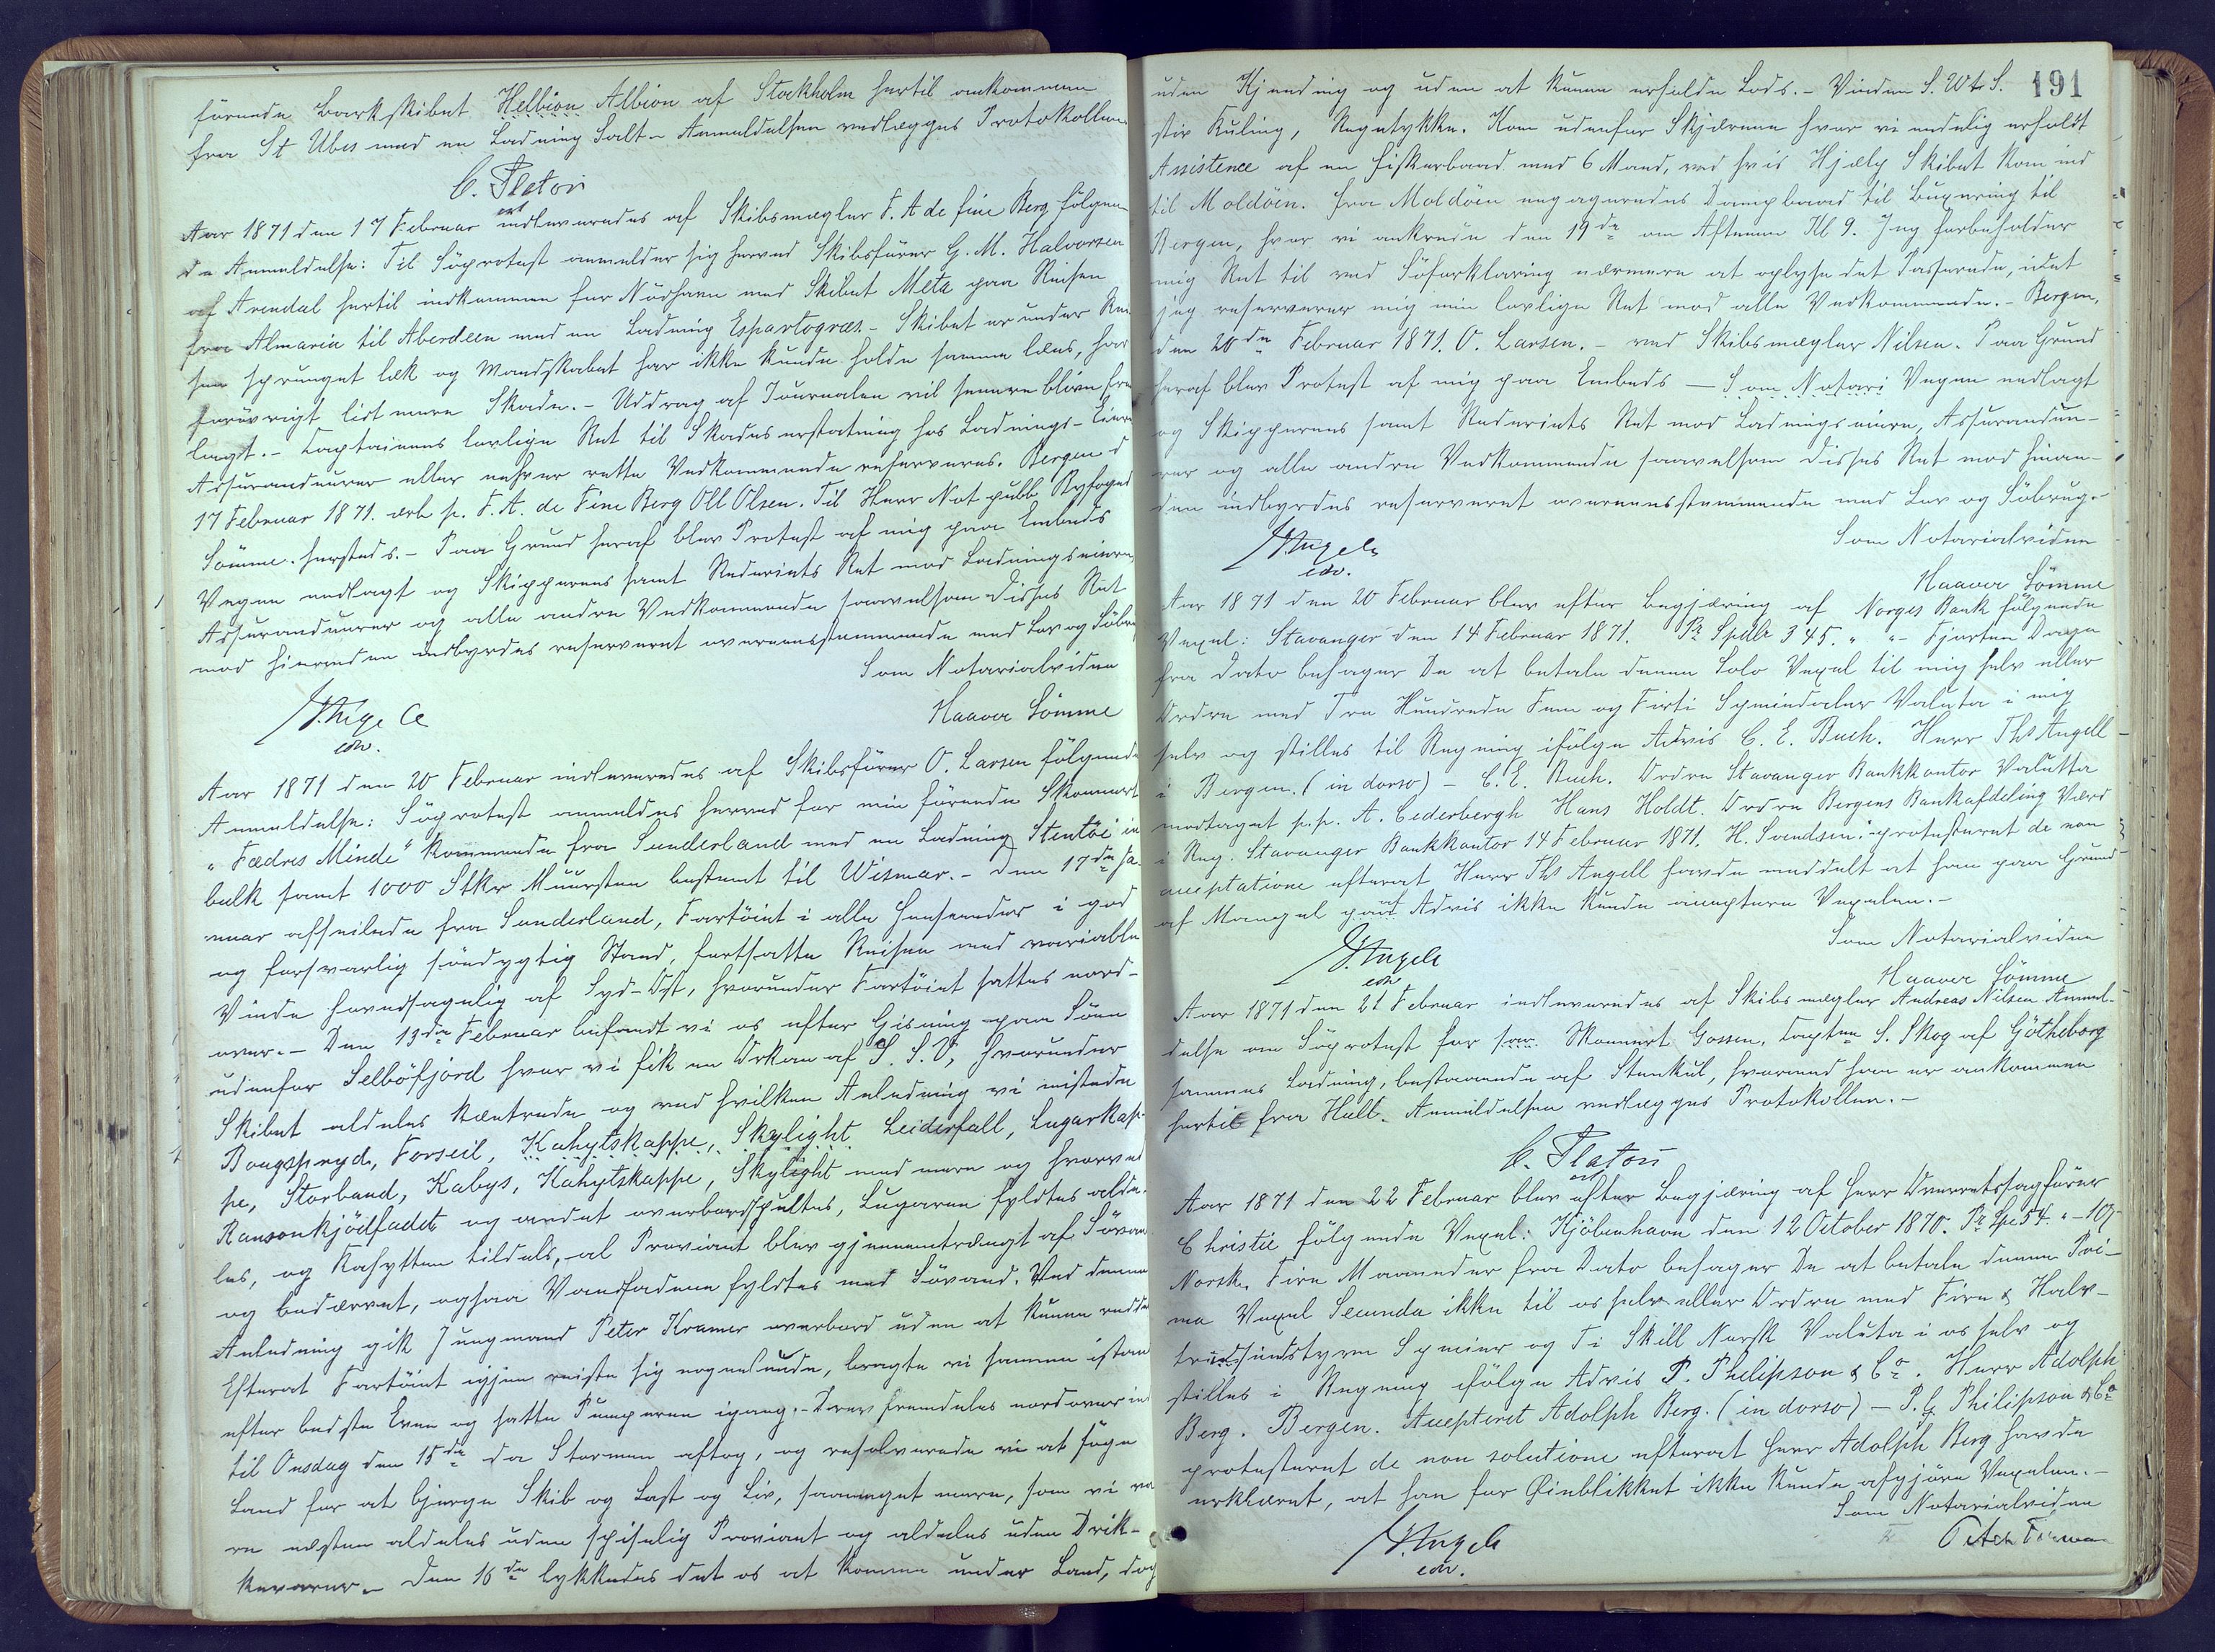 førende Barkskibet Hellion Albion af Stockholm hertil ankommen
fra St Ubes med en Ladning Salt – Anmeldelsen vedlægges Protokollen.
C. Platou
Aar 1871 den 17 Februar indleveredes af Skibsmægler F. A de fine Berg følgen-
de Anmeldelse: Til Søprotest anmelder sig herved Skibsfører G. M. Halvorsen
af Arendal hertil indkommen for Nødhavn med Skibet Meta paa Reisen
fra Almaria til Aberdeen med en Ladning Espartogræs. – Skibet er under Rei-
sen sprunget læk og Mandskabet har ikke kunde holde samme læns, har
forøvrigt lidt mere Skade. – Uddrag af Journalen vil senere blive frem
lagt. – Captainens lovlige Ret til Skadeserstatning hos Ladnings-Eiere
Assurandeurer eller enhver rette Vedkommende reserveres. Bergen d
17 Februar 1871. ærb p. F. A. de Fine Berg Oll Olsen. Til Herr Not publ. Byfoged
Sömme. hersteds. – Paa Grund heraf blev Protest af mig paa Embeds
Vegne nedlagt og Skipperens samt Rederiets Ret mod Ladningseiere,
Assurandeurer og alle andre Vedkommende saavelsom disses Ret
mod hinanden indbyrdes reserveret overeensstemmende med Lov og Søbrug
Som Notarialvidne
J. Angell Haaver Sömme
edv.
Aar 1871 den 20 Februar indleveredes af Skibsfører O. Larsen følgende
Anmeldelse: Søprotest anmeldes herved for min førende Skonnert
"Fædres Minde" kommende fra Sunderland med en Ladning Stentøi in
bulk samt 1000 Stkr Muursten bestemt til Wismar. – Den 17de Ja-
nuar afseilede fra Sunderland, Fartøiet i alle Henseender i god
og forsvarlig sødygtig Stand, fortsatte Reisen med variable
Vinde hovedsagelig af Syd-Ost, hvorunder Fartøiet sattes nord-
over. – Den 13de Februar befandt vi os efter Gisning paa Søen
udenfor Selböfjord hvor vi fik en Orkan af S. S. V, hvorunder
Skibet aldeles kæntrede og ved hvilken Anledning vi mistede
Bougspryd, Forseil, Kahytskappe, Skylight Leidersfall, Lugarkap-
pe, Storbaad, Kabys, Kahytskappe, Skylight med mere og hvorved
Ransonkjödfadet og andet overbordspultes, Lugaren fyldtes alde-
les, og Kahytten tildels, al Proviant blev gjennemtrængt af Søvand
og bedærvet, ogsaa Vandfadene fyldtes med Søvand. Ved denne
Anledning gik Jungmand Peter Kramer overbord uden at kunne reddes
Efterat Fartøiet igjen reiste sig nogenlunde, bragte vi samme istand
efter bedste Evne og satte Pumperne igang. – Drev fremdeles nordover in-
til Onsdag den 15de da Stormen aftog, og resolverede vi at søge
Land for at bjerge Skib og Last og Liv, saameget mere, som vi va-
re næsten aldeles uden spiselig Proviant og aldeles uden Drik-
kevarer. – Den 16de lykkedes det os at komme under Land, dog
191
uden Kjending og uden at kunne erholde Lods. – Vinden S. W t. S.
stiv Kuling, Regntykke. Kom udenfor Skjærene hvor vi endelig erholdt
Assistence af en Fiskerbaad med 6 Mand, ved hvis Hjælp Skibet kom ind
til Moldöen. Fra Moldöen engageredes Dampbaad til Bugsering til
Bergen, hvor vi ankrede den 19de om Aftenen Kl 9. Jeg forbeholder
mig Ret til ved Søforklaring nærmere at oplyse det Passerede, idet
jeg reserverer mig min lovlige Ret mod alle Vedkommende. – Bergen,
den 20de Februar 1871. O. Larsen. – ved Skibsmægler Nilsen. Paa Grund
heraf blev Protest af mig paa Embeds – Som Notari Vegne nedlagt
og Skipperens samt Rederiets Ret mod Ladningseiere, Assurandeu-
rer og alle andre Vedkommende saavelsom disses Ret mod hinan-
den indbyrdes reserveret overeensstemmende med Lov og Søbrug. –
Som Notarialvidne
J. Angell
edv. Haaver Sömme
Aar 1871 den 20 Februar blev efter Begjæring af Norges Bank følgende
Vexel: Stavanger den 14 Februar 1871. Pr Spdlr 345. " " – Fjorten Dage
fra Dato behager De at betale denne Solo Vexel til mig selv eller
Ordre med Tre Hundrede Fem og Firti Speciedaler Valuta i mig
selv og stilles til Regning ifølge Advis C. E. Buch. Herr Ths Angell
i Bergen. (in dorso) – C. E. Buch. Ordre Stavanger Bankkontor Valutta
modtaget p.p. A. Cederbergh Hans Holdt. Ordre Bergens Bankafdeling Værd
i Reg. Stavanger Bankkontor 14 Februar 1871. H. Svendsen: protesteret de non
acceptatione efterat Herr Ths Angell havde meddelt at han paa Grund
af Mangel paa Advis ikke kunde acceptere Vexelen. –
Som Notarialvidne
J. Angell
edv. Haaver Sömme
Aar 1871 den 21 Februar indleveredes af Skibsmægler Andreas Nilsen Anmel-
delse om Søprotest for Skonnert Gossen, Captn S. Skog af Götheborg
sammes Ladning, bestaaende af Stenkul, hvormed han er ankommen
hertil fra Hull. Anmeldelsen vedlægges Protokollen. –
C. Platou
Aar 1871 den 22 Februar blev efter Begjæring af Herr Overretssagfører
Christie følgende Vexel: Kjöbenhavn den 12 October 1870. Pr Spe 54. " – 10ß
Norsk. Fire Maaneder fra Dato behager De at betale denne Pri-
ma Vexel Secunda ikke til os selv eller Ordre med Fire & Halv-
tredsindstyve Specier og Ti Skill Norsk Valuta i os selv og
stilles i Regning ifølge Advis P. Philipson & Co. Herr Adolph
Berg. Bergen. Accepteret Adolph Berg. (in dorso) – P. Philipson & Co
protesteret de non solutione efterat Herr Adolph Berg havde
erklæret, at han for Øieblikket ikke kunde afgjöre Vexelen. –
Som Notarialvidne
J. Angell
edv.